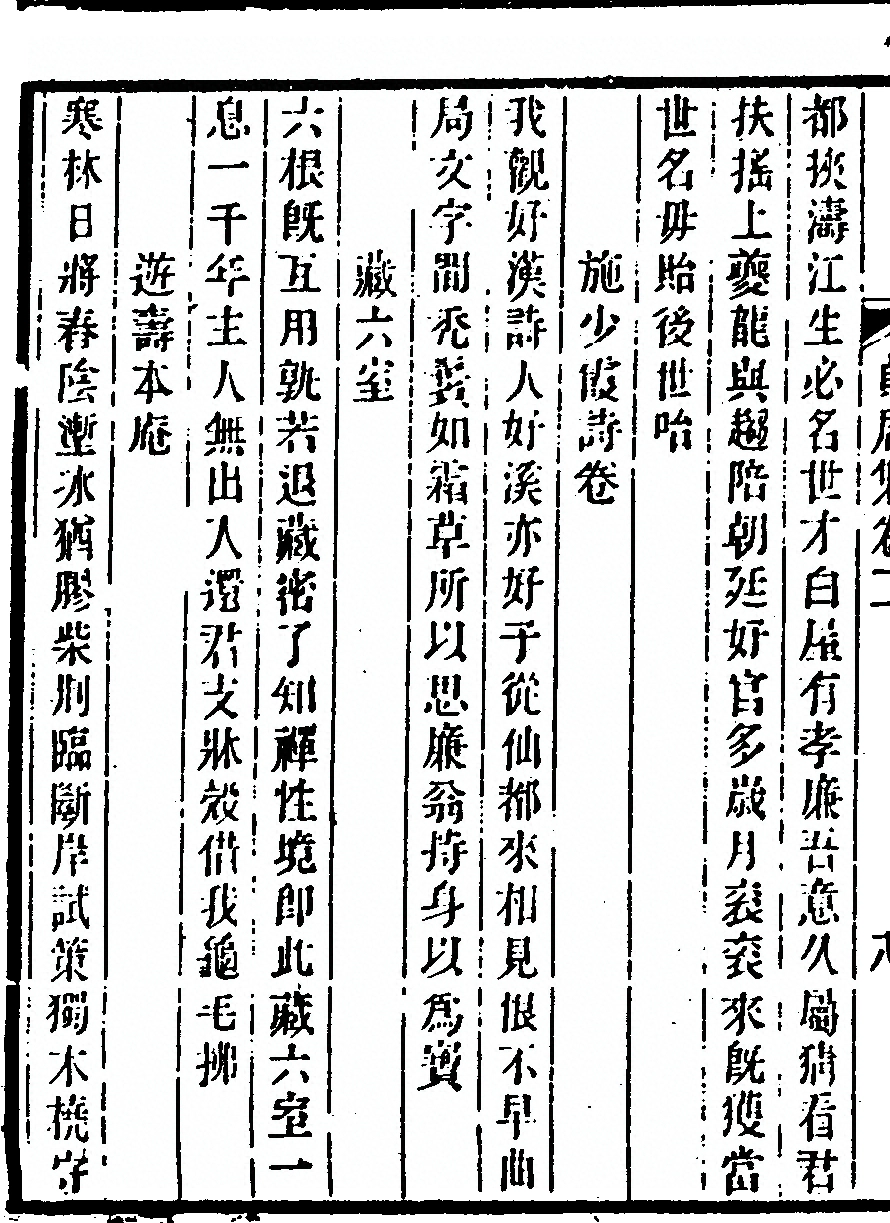 都挾濤江生必名世才白屋有孝廉吾意久屬猜看君
扶搖上夔龍與趨陪朝廷好官多歲月袞袞來既獲當
世名毋貽後世咍
施少霞詩卷
我觀好漢詩人好溪亦好于從仙都來相見恨不早曲
局文字間禿鬢如霜草所以思廉翁持身以為寶
藏六室
六根既互用孰若退藏密了知禪性境即此藏六室一
息一千年主人無出人還君支牀殼借我龜毛拂
遊壽本庵
寒林日將春陰壍冰猶膠柴荆臨斷岸試策獨木橋守
居集卷二